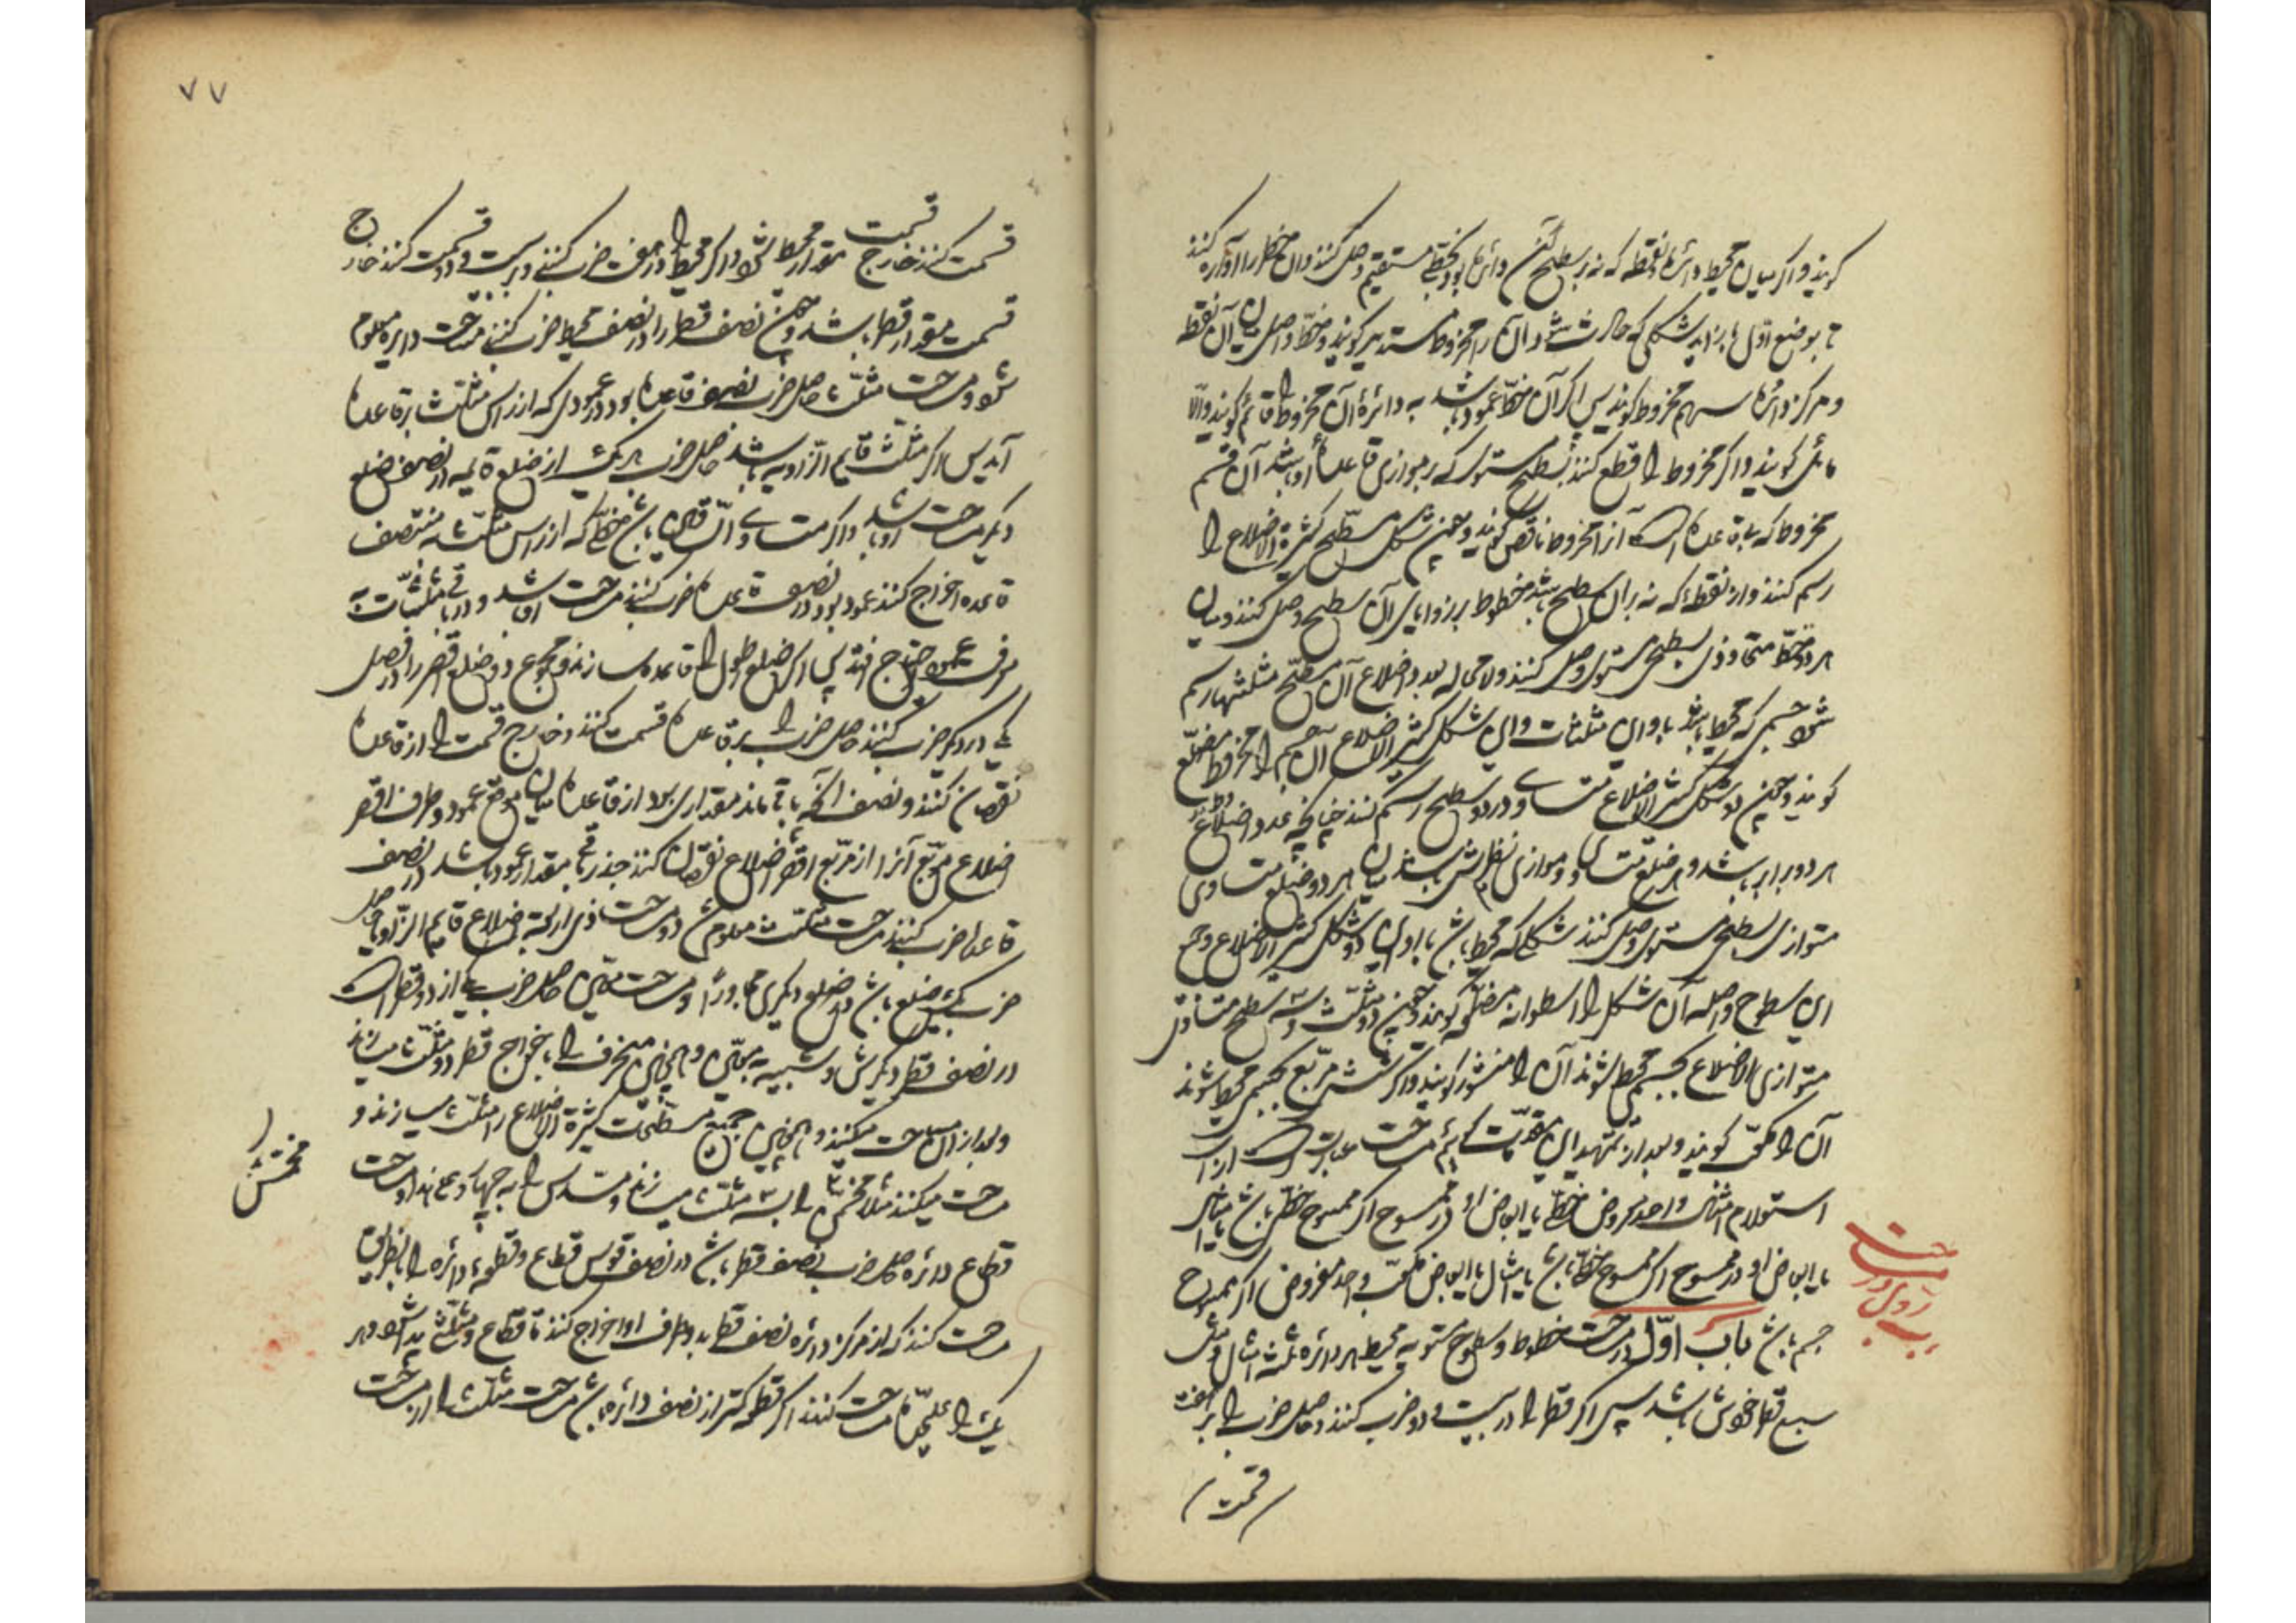 کویند و اکر میان محیط دائرهٔ و نقطه که نه بر سطح آن دائره بود بخطی مستقیم وصل کنند و آن خط را اداره کنند
تا بوضع اوّل باز آید شکلی که حادث شود آن را مخروط مستدیر کویند و خطّ واصل میان آن نقطه
و مرکز دائره سهم مخروط کویند پس اکر آن خطّ عمود باشد بر دائره آن مخروط را قائم کویند والّا
مائل کویند و اکر مخروط را قطع کنند بسطح مستوی که بر موازی قاعدهٔ او باشد آن قسم
مخروط که با قاعده است آنرا مخروط ناقص کویند و چون شکل مسطّح کثیرة الاضلاع را
رسم کنند و از نقطهٔ که نه بر آن سطح باشد خطوط بزوایای آن سطح وصل کنند و میان
هر دو خطّ متحاذی بسطحی مستوی وصل کنند ولا محاله بعدد اضلاع آن مسطّح مثلثها رسم
شود جسمی که محیط باشد باو این مثلثات و این شکل کثیر الاضلاع آن جسم را مخروط مضلّع
کویند و چون دو شکل کثیر الاضلاع متساوی در دو سطح رسم کنند چنانچه عدد اضلاع
هر دو برابر باشد و هر ضلع متساوی و موازی نظیرش باشد میان هر دو ضلع متساوی
متوازی بسطحی مستوی وصل کنند شکلی که محیط باشد باو این دو شکل کثیر الاضلاع و جمیع
این سطوح واصله آن شکل را اسطوانه مضلّعه کویند و چون دو مثلّث و سه سطح
متوازی الاضلاع بجسمی محیط شوند آن را منشور کویند و اکر شش مربّع بجسمی محیط شوند
آن را مکعّب کویند و بعد از تمهید این مقدّمات کوئیم مساحت عبارتست از
استعلام امثال واحد مفروض خطّی یا ابعاض او در ممسوح اکر ممسوح خطّی باشد یا امثال
یا ابعاض او در ممسوح اکر ممسوح سطح باشد یا امثال یا ابعاض مکعّب واحد مفروض اکر ممسوح
جسم باشد باب اوّل در مساحت خطوط و سطوح مستویه محیط هر دائره ثلثة امثال و
سبع قطر خویش باشد پس اکر قطر را در بیست و دو ضرب کنند و حاصل ضرب را بر هفت
قسمت
مساحت
باب
۷۷
قسمت کنند خارج قسمت مقدار محیط شود و اکر محیط را در هفت ضرب کنند و بر بیست و دو قسمت کنند خارج
قسمت مقدار قطر باشد و چون نصف قطر را در نصف محیط ضرب کنند مساحت دایره معلوم
شود و مساحت مثلّث حاصل ضرب نصف قاعده بود در عمودی که از رأس مثلّث بر قاعده
آید پس اکر مثلّث قایم الزاویه باشد حاصل ضرب یک از ضلع قایمه در نصف ضلع
دیکر مساحت او باشد و اکر متساوی السّاقین باشد خطّی که از رأس مثلّث بمنتصف
قاعده اخراج کنند عمود بود در نصف قاعده ضرب کنند مساحت او باشد و در باقی مثلّثات به
معرفت عمود احتیاج افتد پس اکر ضلع اطول را قاعده سازند و مجموع دو ضلع اقصر را در فضل
یکی در دیکر ضرب کنند حاصل ضرب را بر قاعده قسمت کنند و خارج قسمت را از قاعده
نقصان کنند و نصف آنچه باقی ماند مقداری بود از قاعده میان موقع عمود و طرف اقصر
اضلاع مربّع آنرا از مربّع اقصر اضلاع نقصان کنند جذر باقی مقدار عمود باشد در نصف
قاعده ضرب کنند مساحت مثلّث معلوم شود و مساحت ذی اربعة اضلاع قایم الزّاویه حاصل
ضرب یک ضلع باشد در ضلع دیکری مجاور او و مساحت معیّن حاصل ضرب یکی از دو قطر است
در نصف قطر دیکرش و شبیه بمعیّن و همچنین منحرف را باخراج قطر دو مثلّث سازند
و بعد از آن مساحت میکنند و همچنین جمیع مسطّحات کثیرة الاضلاع را مثلّث سازند و
مساحت میکنند مثلا مخمّس را بسه مثلّث میسازند و مسدّس را به چهار و علی هذا و مساحت
قطاع دائره حاصل ضرب نصف قطر باشد در نصف قوس قطاع و قطعهٔ دائره را باینطریق
مساحت کنند که از مرکز دائره نصف قطر بدو طرف او اخراج کنند تا قطاع و مثلّث پیدا شود هر
یک را علیحدّه مساحت کنند اکر قطعه کمتر از نصف دائره باشد مساحت مثلّث را از مساحت
مخمّس